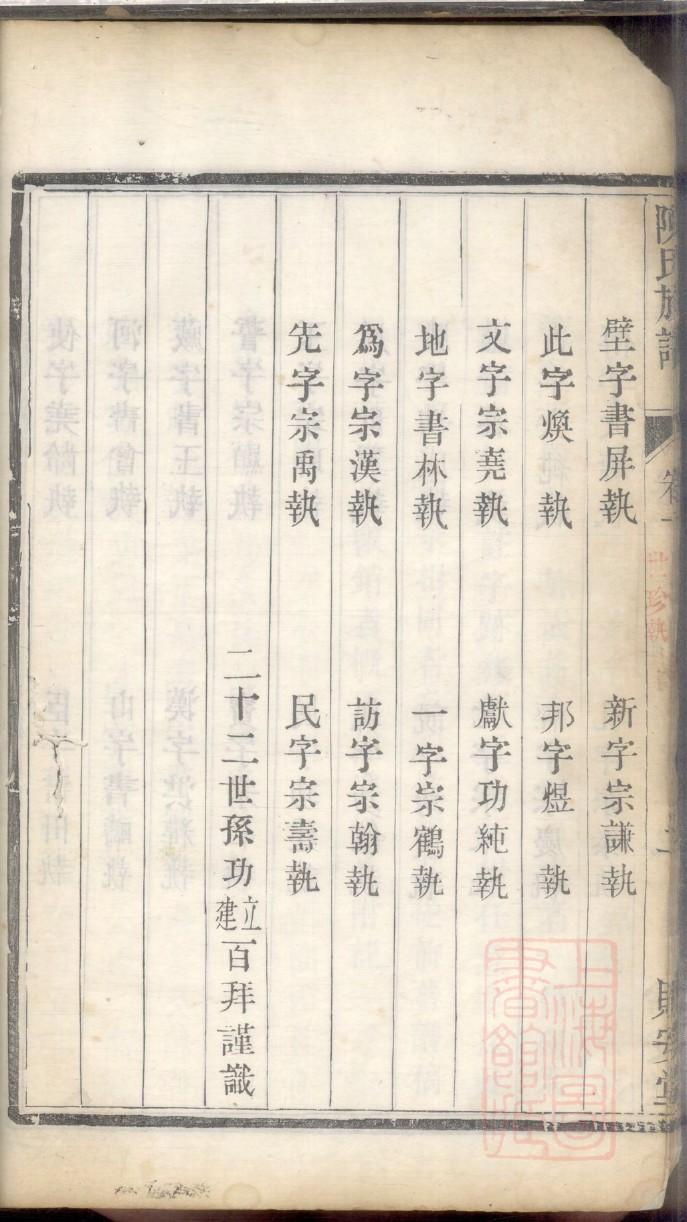 陳氏族譜
卷一
世珍執
貽安堂
壁字書屏執　新字宗謙執
此字煥　執　邦字煜　執
文字宗堯執　獻字功純執
地字書林執　一字宗鶴執
爲字宗漢執　訪字宗翰執
先字宗禹執　民字宗壽執
二十二世孫功立建百拜謹識
上海圖書館藏